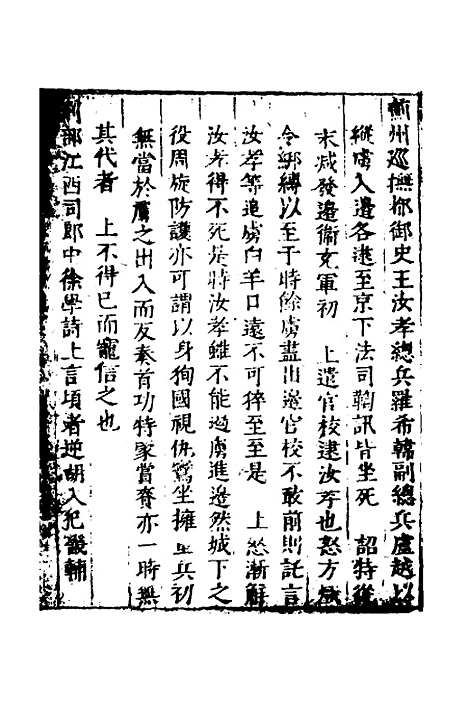 薊州巡撫都御史王汝孝總兵羅希韓副總兵盧越以
縱虜入邊各逮至京下法司鞫訊皆坐死　詔特從
末减發邊衛充軍初　上遣官校逮汝孝也怒方熾
令綁縛以至于時餘虜盡出邊官校不敢前則託言
汝孝等追虜白羊口遠不可猝至至是　上怒漸解
汝孝得不死是時汝孝雖不能遏虜進邊然城下之
役周旋防護亦可謂以身狥國視仇鸞坐擁重兵初
無當於虜之出入而反奏首功特蒙賞賚亦一時無
其代者　上不得已而寵信之也
刑部江西司郎中徐學詩上言頃者逆胡入犯畿輔